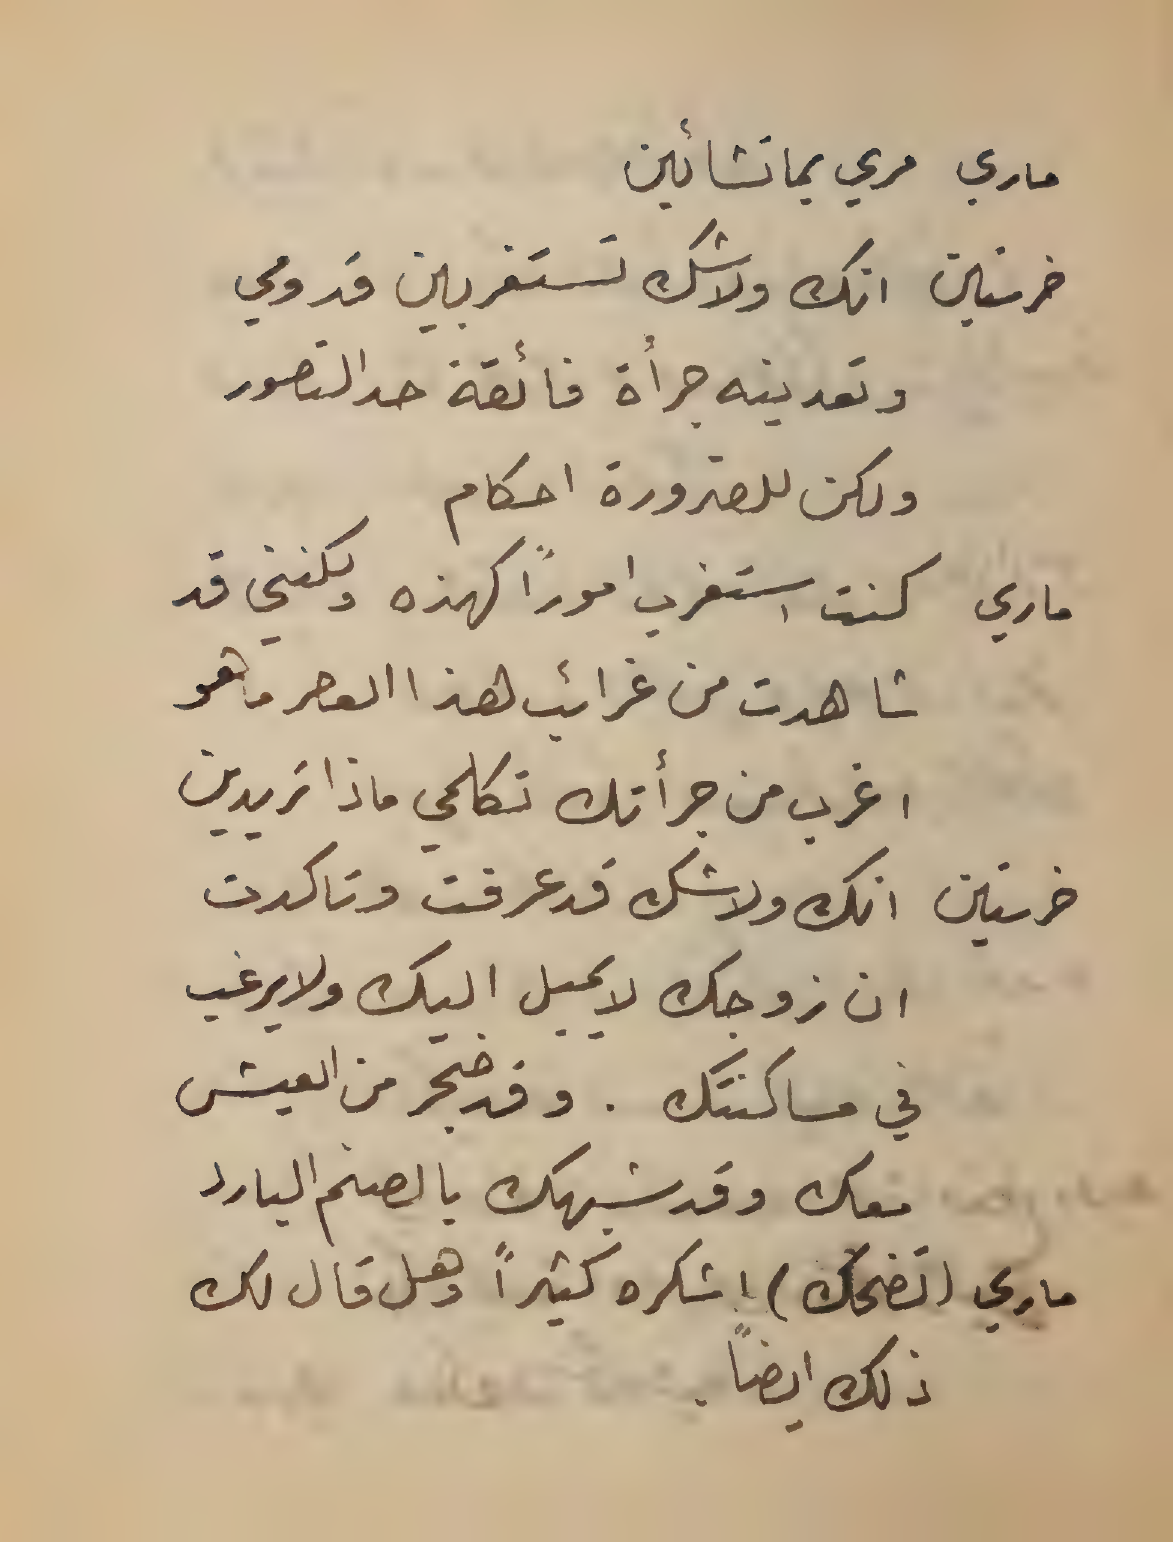 ماري مري بما تشائين
خرستين انك ولاشك تستغربين قدومي
وتعدينه جرأة فائقة حد التصور
ولكن للضرورة احكام
ماري كنت استغرب اموراً كهذه ولكنني قد
شاهدت من غرائب هذا العصر ما هو
اغرب من جرأتك تكلمي ماذا تريدين
خرستين انك ولاشك قد عرفت وتاكدت
ان زوجك لا يميل اليك ولا يرغب
في مساكنتك . وقد ضجر من العيش
معك وقد شبهك بالصنم البارد
ماري (تضحك) اشكره كثيراً وهل قال لك
ذلك ايضاً.